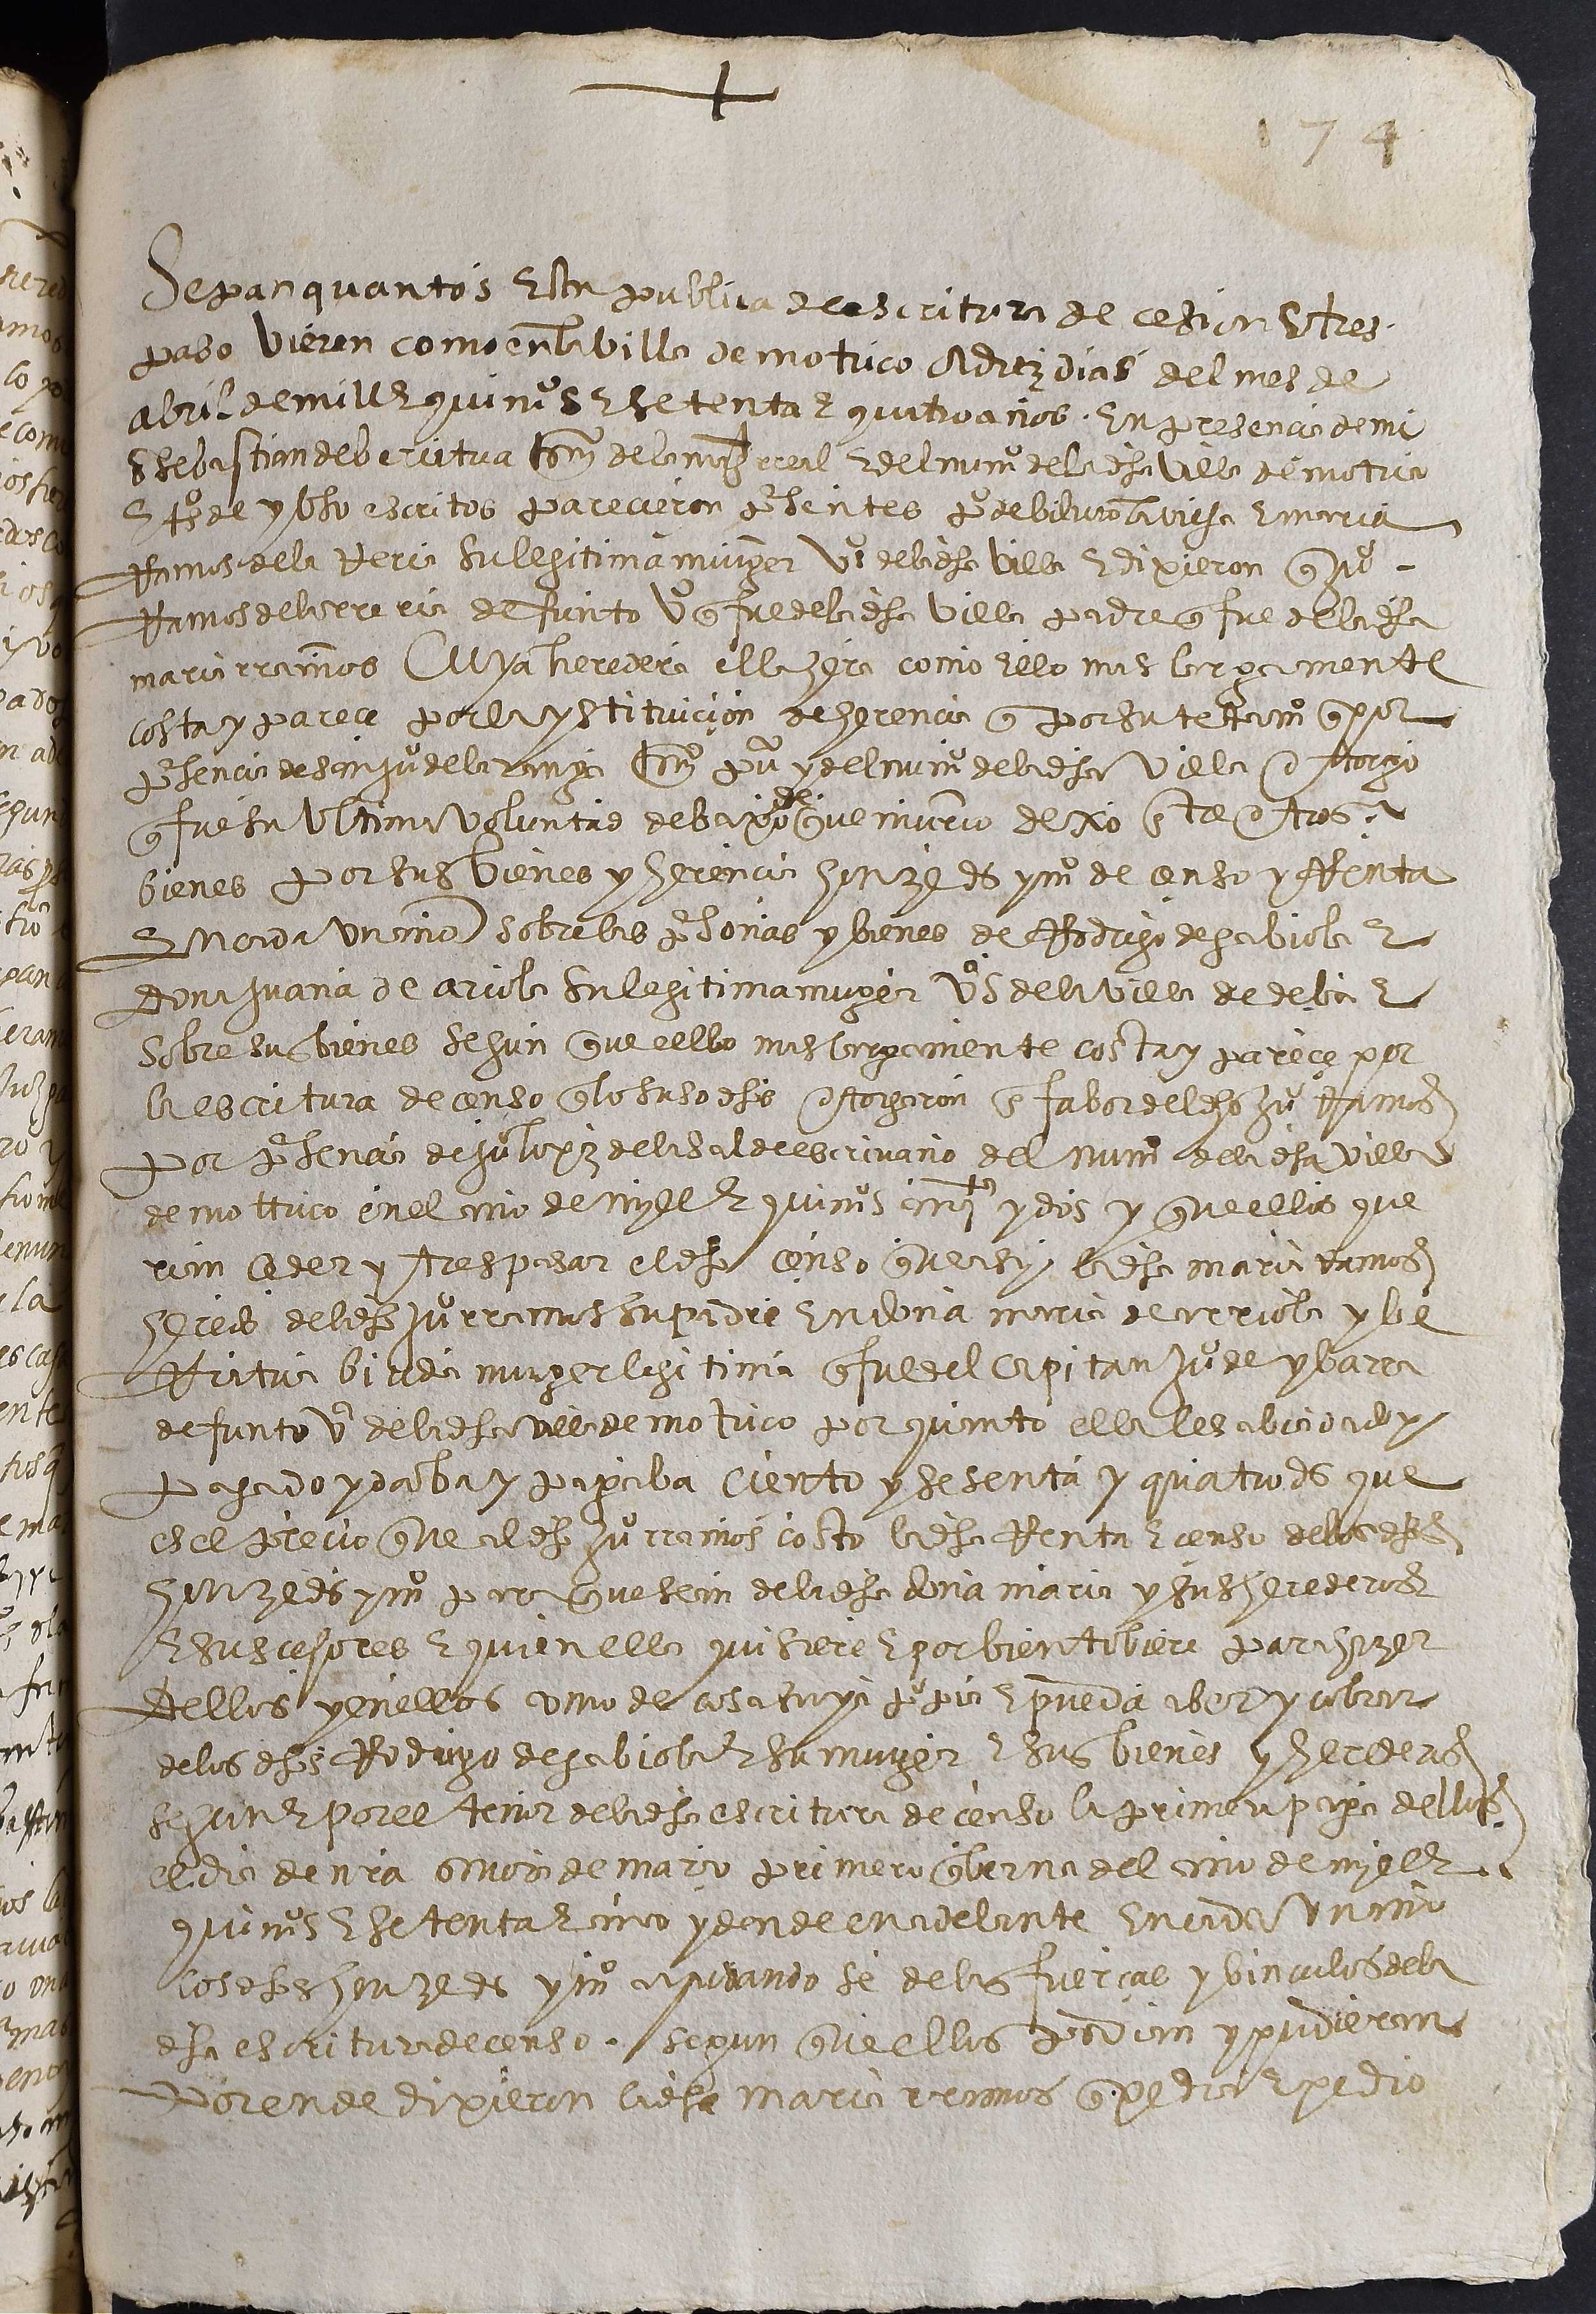 174
Sepan quantos esta publica de escritura de cesion e tres
paso vieren como en la villa de motrico a diez dias del mes de
abril de mill e quinos e setenta e quatro años en presencia de mi
Sebastian de berriatua scrno de la magd rreal e del numo de la dha villa de motrico
e to de yuso escritos parecieron presentes po de bidurrota vieja e maria
Ramos de la Reria su legitima muger vos de la dha villa e dixieron q juo
Ramos de la rreria defunto vo q fue de la dha villa padre q fue de la dha
maria rramos cuya heredera ella hera como dello mas largamente
costa y parece por la ystituicion de herencia q por su testamo q por
presencia de san juo de la ranga scrno puco y del numo de la dha villa otorgo
q fue su ultima voluntad debaxo de que murio dexo entre otros
bienes por sus bienes y herencia honze ds y mo de censo y Renta
en cada un año sobre las personas y bienes de Rodrigo de gabiola e
dona juana de ariola su legitima muger vos de la villa de deba e
sobre sus bienes segun que dello mas largamente costa y parece por
la escritura de censo q los suso dhos otorgaron en fabor del dho juo Ramos
por presencia de juo lopez de la salde escrivano del numo de la dha villa
de mottrico en el año de myll e quinos y dos y que ellos que
rian ceder y trespasar el dho censo que asi la dha maria ramos
heredo del dho juo rramos su padre en doña maria de arriola y be
Rriatua biuda muger legitima q fue del capitan juo de ybarra
defunto va de la dha villa de motrico por quanto ella les abia dado y
pagado y daba y pagaba ciento y sesenta y quatro ds que
es el precio que al dho juo rramos costo la dha Renta e censo de los dhos
honze ds y mo para que sean de la dha doña maria y sus herederos
e suscesores e quien ella quisiere e por bien tobiere para hazer
dellos y en ellos como de cosa suya propia e pueda aber y cobrar
de los dhos Rodrigo de gabiola e su muger e sus bienes y herederos
segun e por el tenor de la dha escritura de censo la primera paga dellos
el dia de nra señora de março primero q berna del año de myll e
quinos e setenta e cinco y dende en adelante en cada un año
los dhos honze ds y mo ayudandose de las fuerças y binculos de la
dha escritura de censo segun que ellos podian y pudieran
Por ende dixieron la dha maria rramos q pedia e pedio